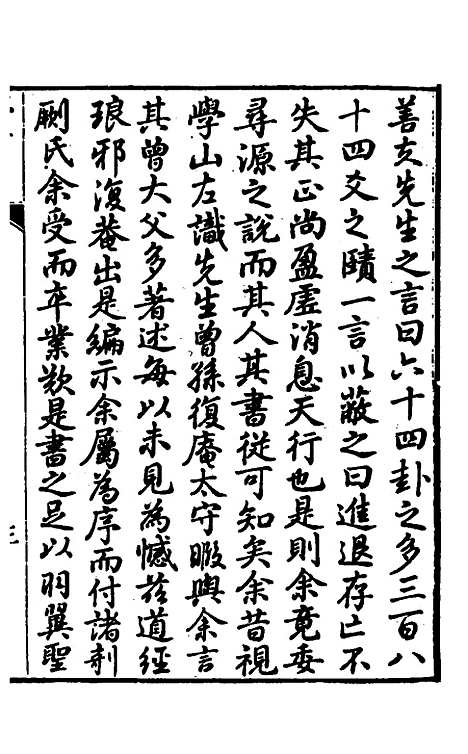 善夫先生之言曰六十四卦之多三百八
十四爻之賾一言以蔽之曰進退存亡不
失其正尚盈虛消息天行也是則余竟委
尋源之說而其人其書從可知矣余昔視
學山左識先生曾孫復庵太守暇與余言
其曾大父多著述每以未見為憾茲道經
琅邪復菴出是編示余屬為序而付諸剞
劂氏余受而卒業歎是書之足以羽翼聖